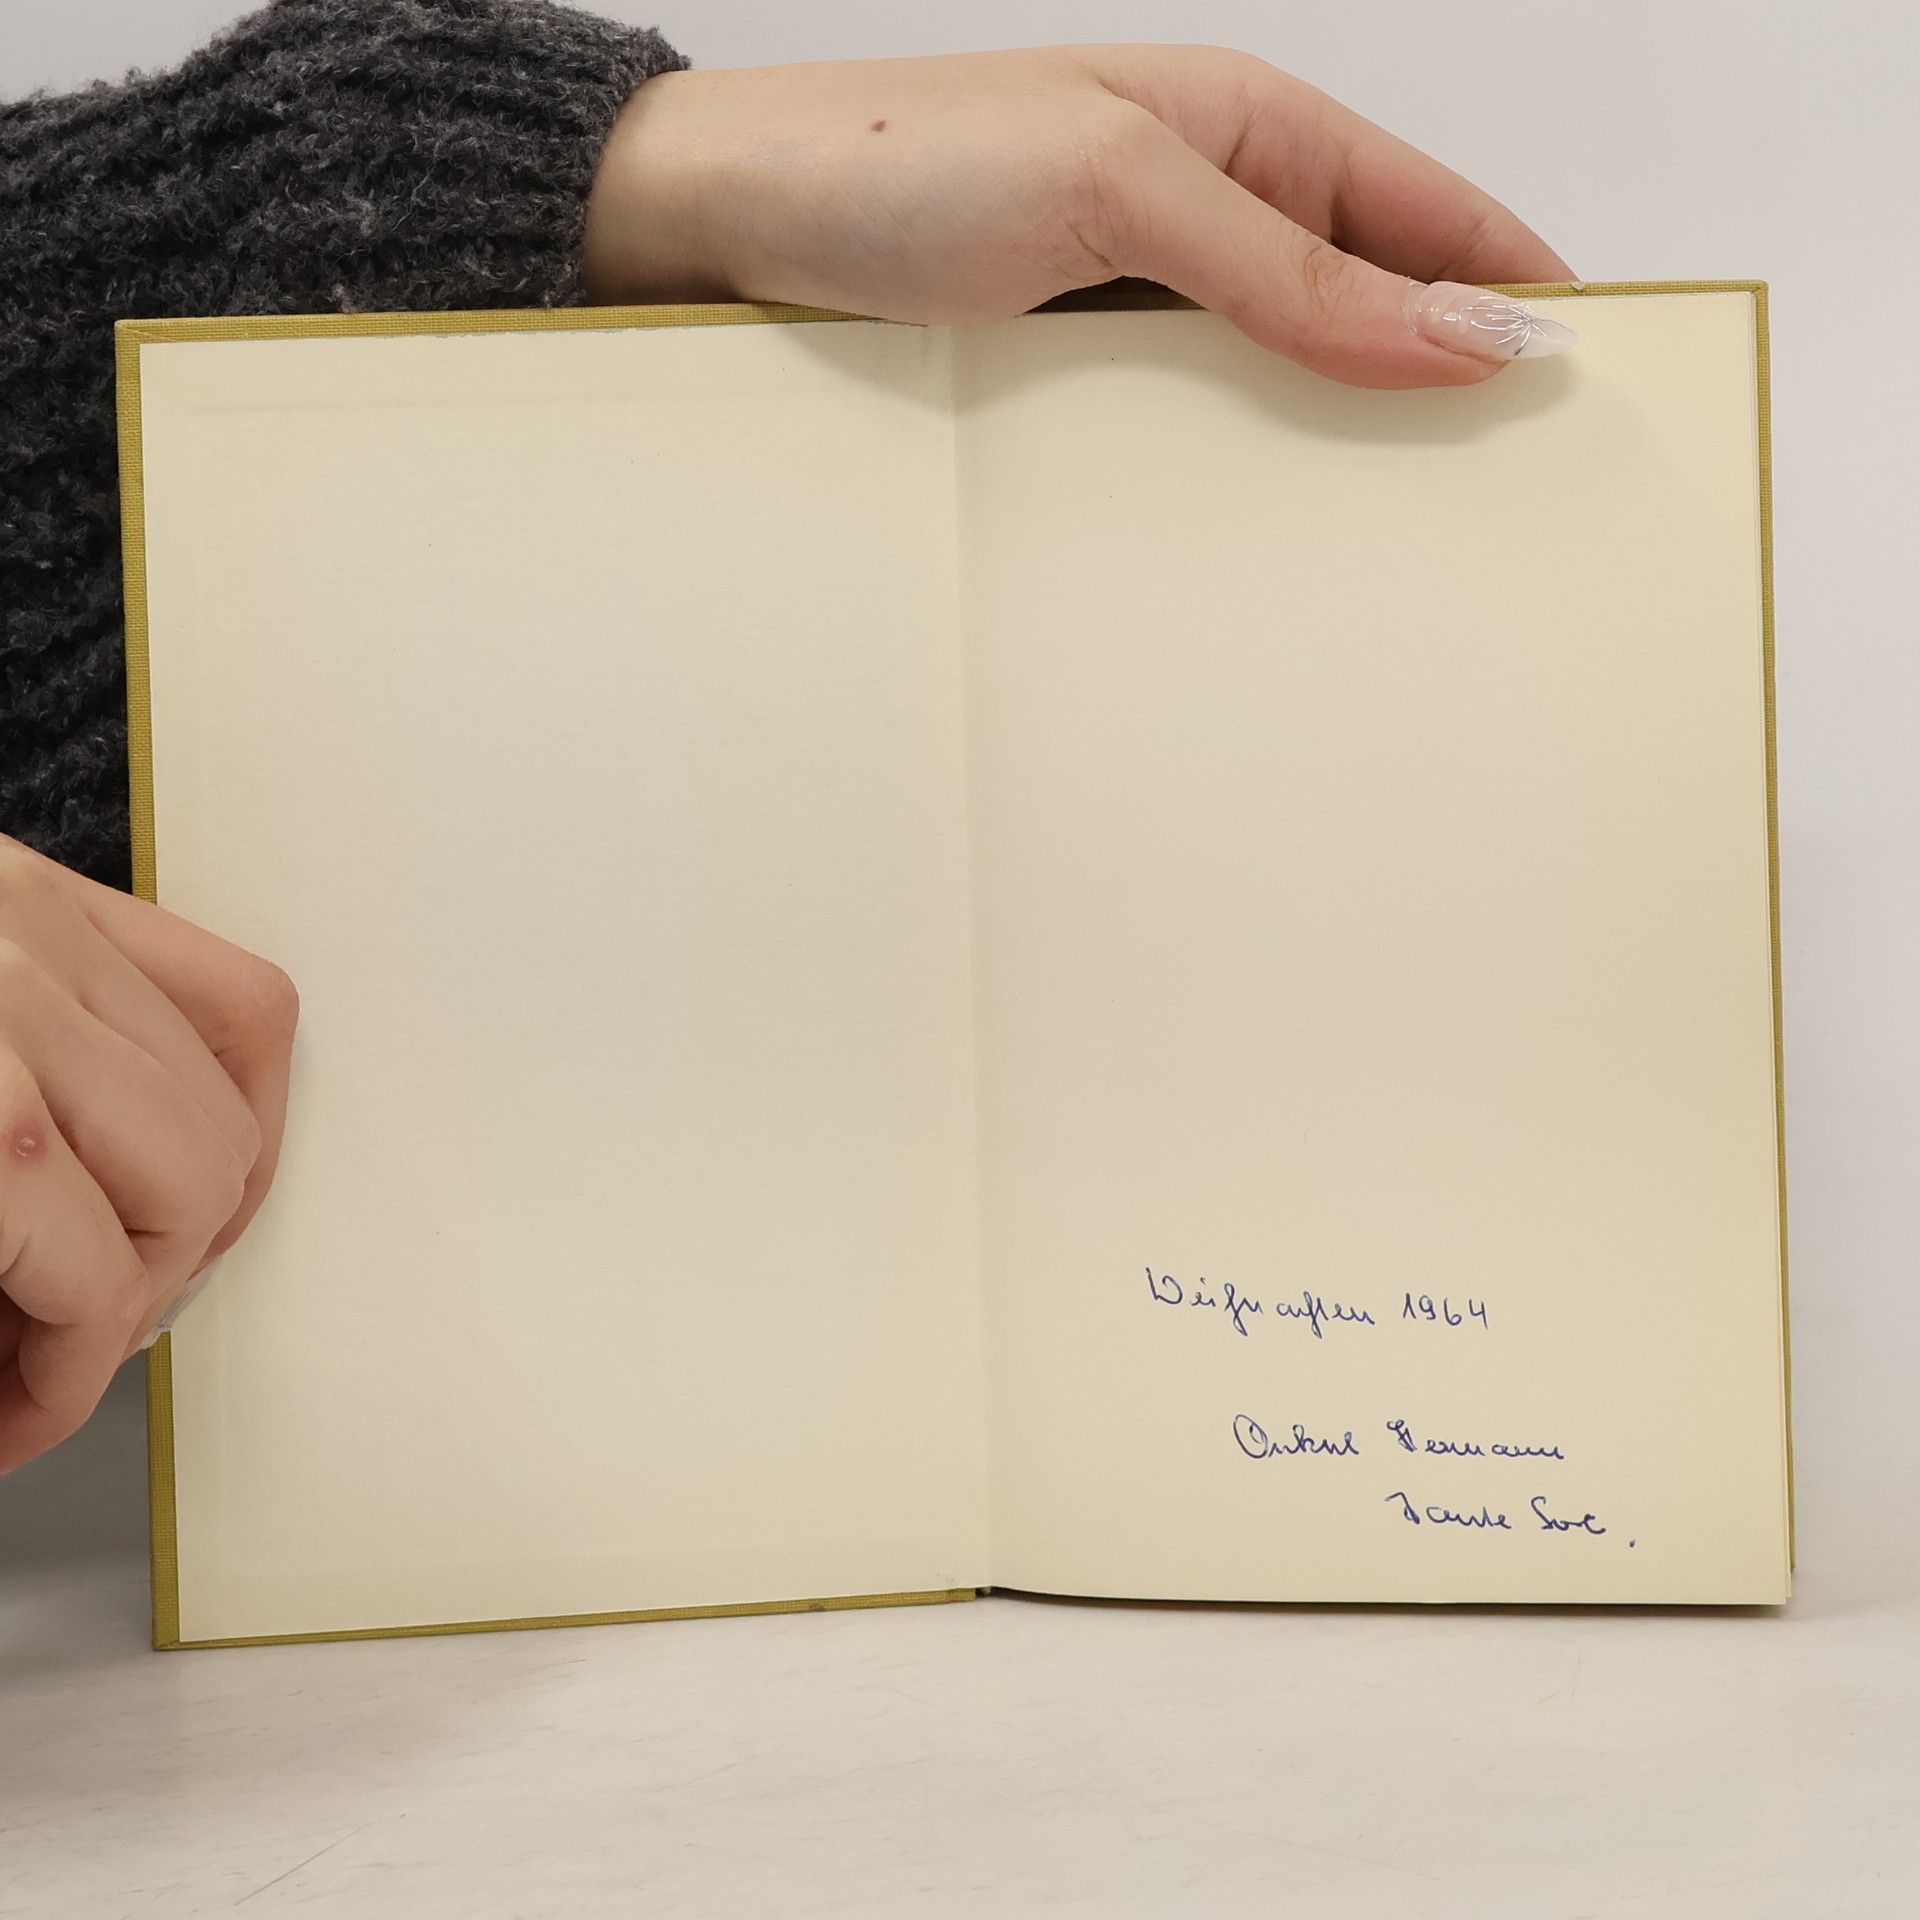 Weihnachten 1964
Onkel Hermann
Tante